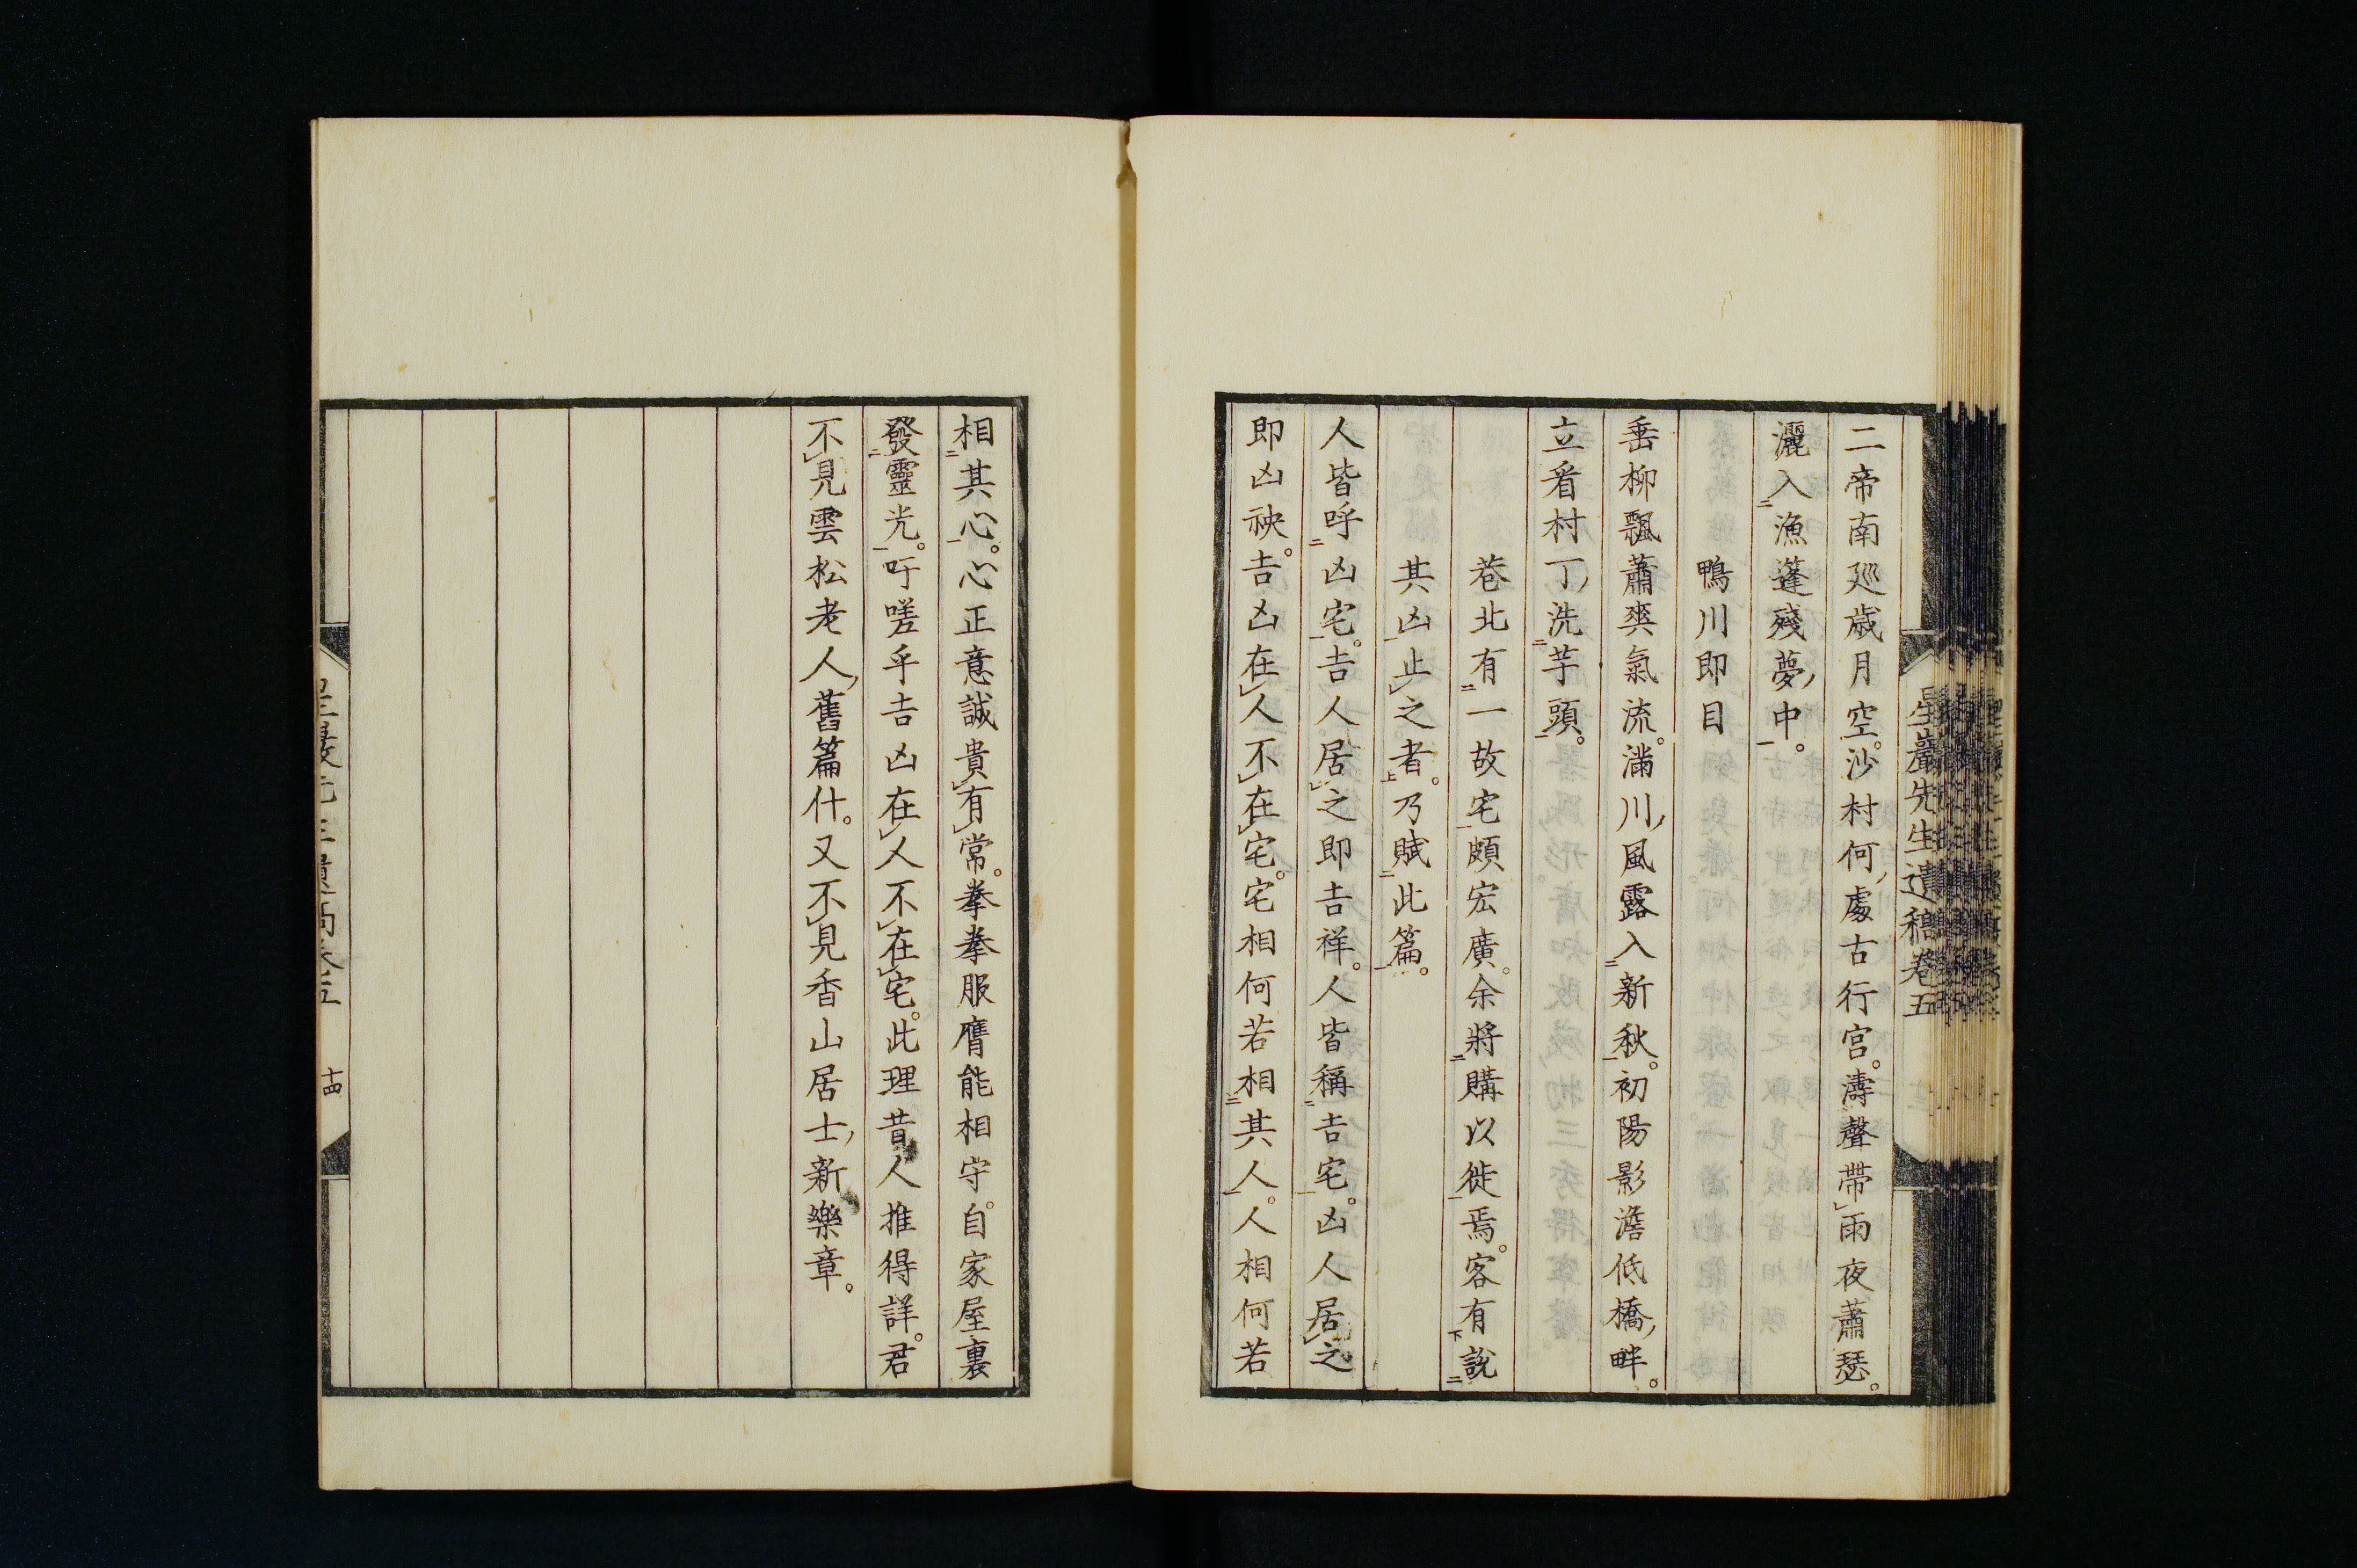 星巖先生遺稿卷五
二帝南廵歳月空。沙村何處古行宮。濤聲帶雨夜蕭瑟。
灑入漁蓬殘夢中。
鴨川即目
垂柳飄蕭爽氣流。滿川風露入新秋。初陽影澹低橋畔。
立看村丁洗芋頭。
巷北有一故宅頗宏廣。余將購以徙焉。客有說
其凶止之者。乃賦此篇。
人皆呼凶宅。吉人居之即吉祥。人皆稱吉宅。凶人居之
即凶殃。吉凶在人不在宅。宅相何若相其人。人相何若
相其心。心正意誠貴有常。拳拳服膺能相守。自家屋裏
發靈光。吁嗟乎吉凶在人不在宅。此理昔人推得詳。君
不見雲松老人舊篇什。又不見香山居士新樂章。
十四